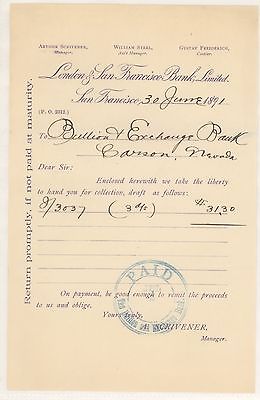 ARTHUR SCRIVENER, Manager.
WILLIAM STEEL, Ass't Manager.
GUSTAV FRIEDERICH, Cashier.
London & San Francisco Bank, Limited.
San Francisco, 30 June 1891
(P. O. 2312.)
To Bullion & Exchange Bank
Carson, Nevada
Dear Sir:
Enclosed herewith we take the liberty
to hand you for collection, draft as follows:
3037 31.30
On payment, be good enough to remit the proceeds
to us and oblige.
Yours truly,
A. SCRIVENER,
Manager.
Return promptly, if not paid at maturity.
PAID